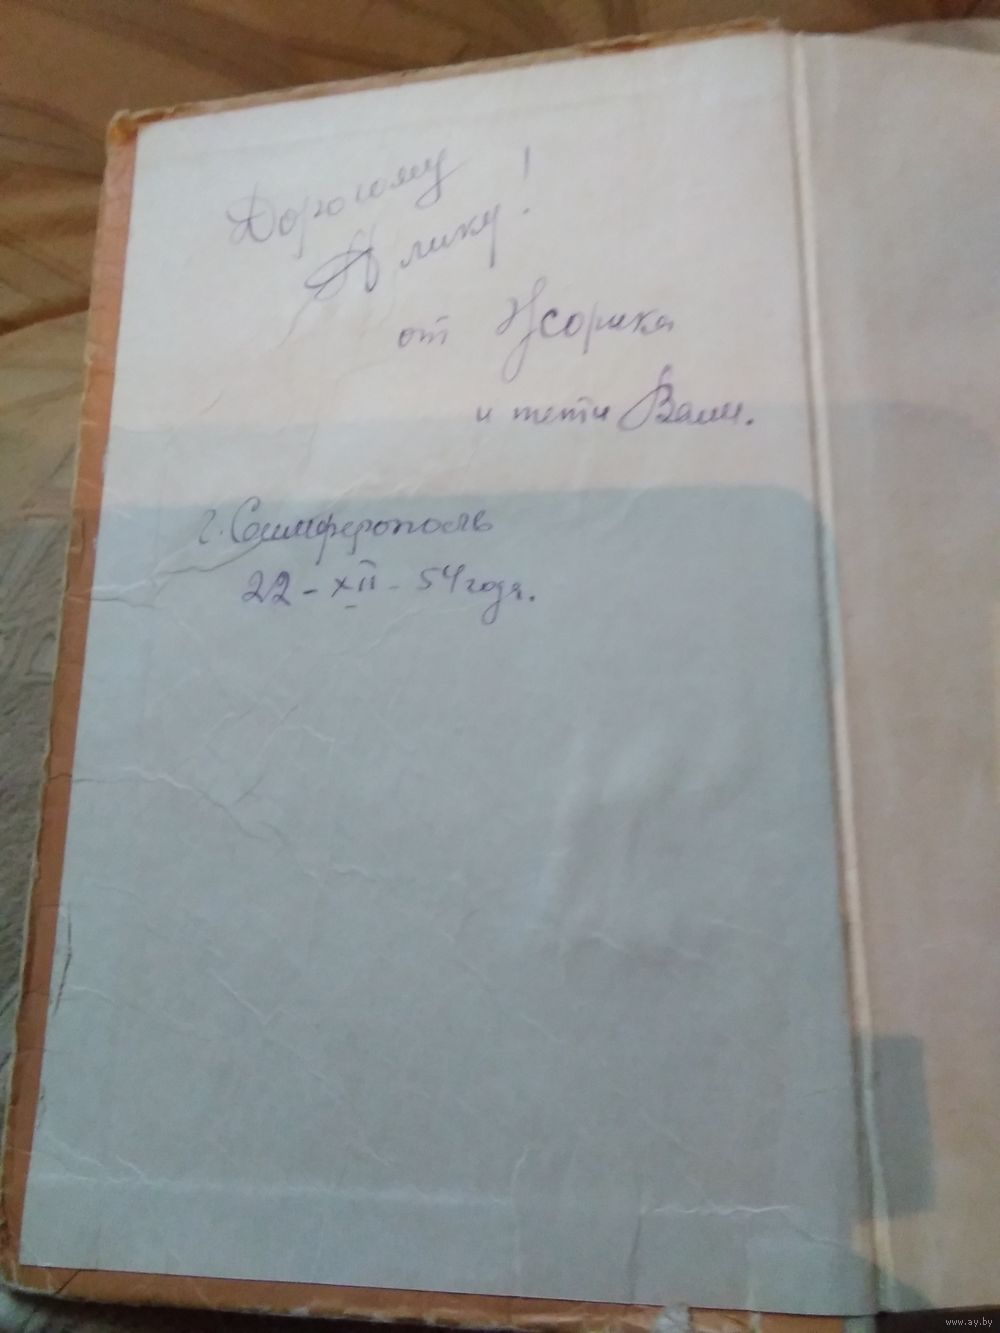 Дорогому
Алику!
от Жорика
и тёти Вали.
г. Симферополь
22 - XII - 54 года.
www.ay.by